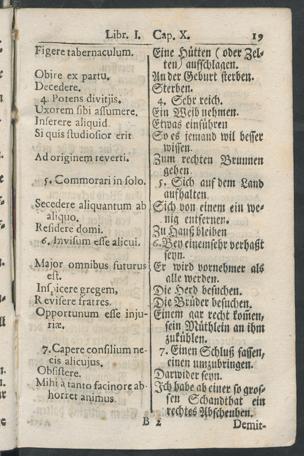 Libr. I. Cap. X. 19
Figere tabernaculum.
Eine Hütten (oder Zel-
ten) auffschlagen.
Obire ex partu.
An der Geburt sterben.
Decedere.
Sterben.
4. Potens divitijs.
4. Sehr reich.
Uxorem sibi assumere.
Ein Weib nehmen.
Inserere aliquid.
Etwas einführen
Si quis studiosior erit
So es jemand wil besser
wissen.
Ad originem reverti.
Zum rechten Brunnen
gehen.
5. Commorari in solo.
5. Sich auf dem Land
aufhalten.
Secedere aliquantum ab
aliquo.
Sich von einem ein we-
nig entfernen.
Residere domi.
Zu Hauß bleiben
6. Invisum esse alicui.
6. Bey einem sehr verhaßt
seyn.
Major omnibus futurus
est.
Er wird vornehmer als
alle werden.
Inspicere gregem,
Die Herd besuchen.
Revisere fratres.
Die Brüder besuchen.
Opportunum esse inju-
riæ.
Einem gar recht kom̃en,
sein Müthlein an ihm
zukühlen.
7. Capere consilium ne-
cis alicujus.
7. Einen Schluß fassen,
einen umzubringen.
Obsistere.
Darwider seyn.
Mihi à tanto facinore ab-
horret animus.
Ich habe ab einer so gros-
sen Schandthat ein
rechtes Abscheuhen.
B 2 Demit-